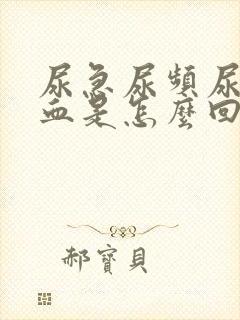 尿急尿頻尿
血是怎麼回
郝寶貝